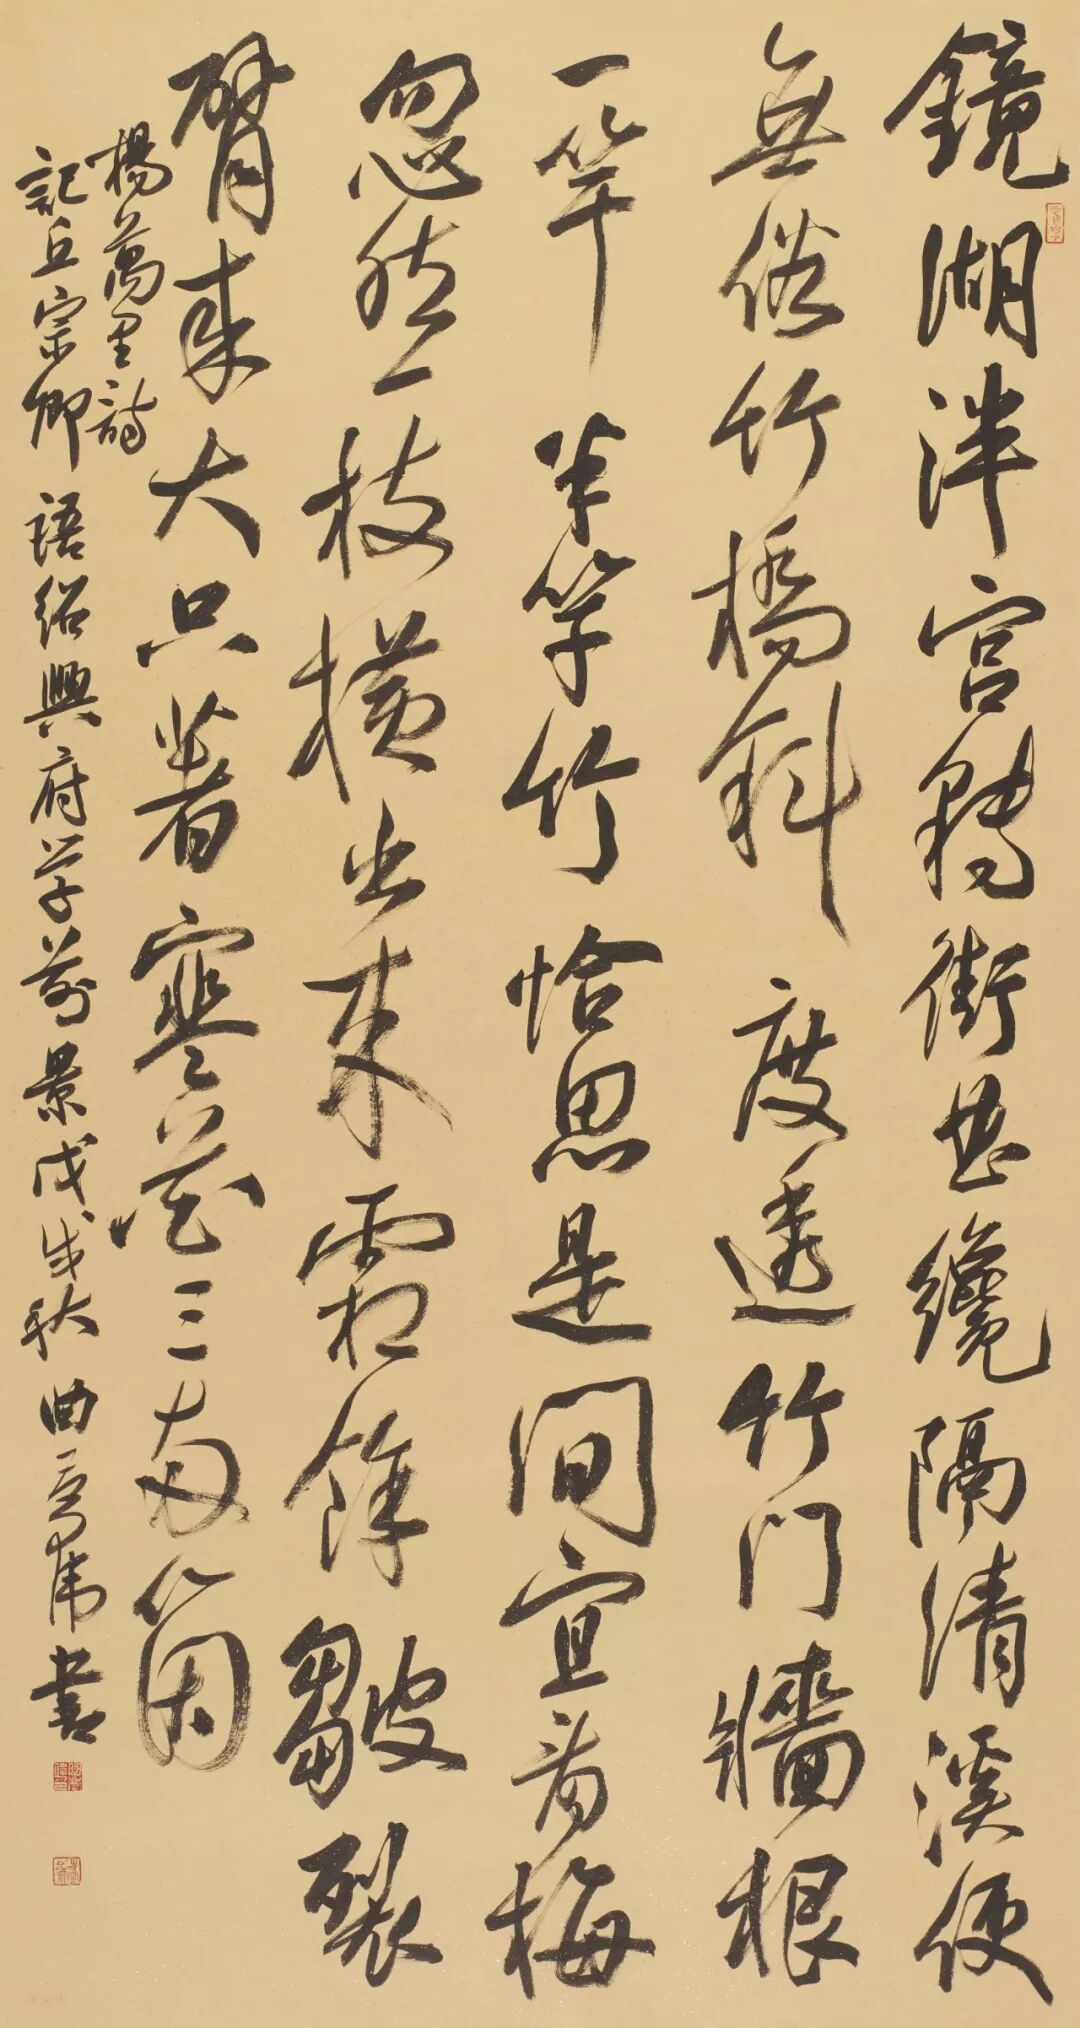 鏡湖泮宮轉街曲纔隔清溪便
無俗竹橋斜度透竹門牆根
一竿半竿竹恰思是間宜看梅
忽然一枝橫出來霜餘皺裂
臂來大只著寒花三兩箇
楊萬里詩
記丘宗卿語紹興府學前景戊戌秋曲慶偉書